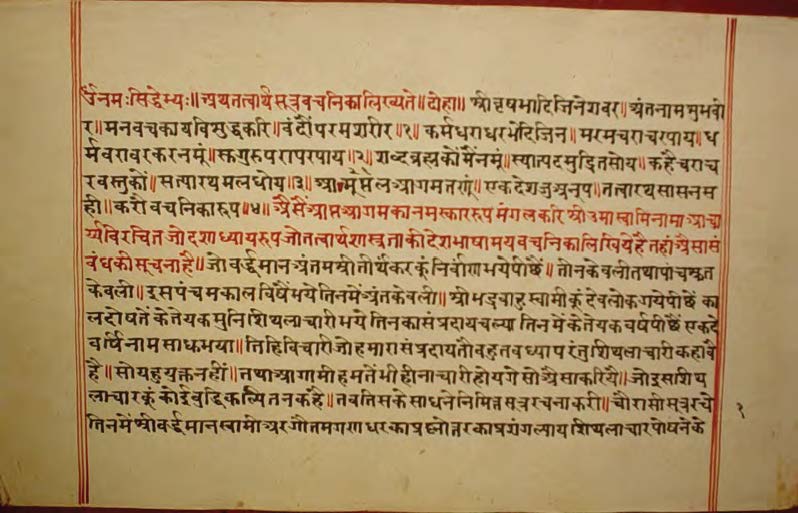 ॐनमःसिद्धेभ्यः॥अथतत्वार्थसूत्रवचनिकालिख्यते॥दोहा॥श्रीवृषभादिजिनेशवर॥अंतनामसुभवी
र॥मनवचकायविशुद्धकरि॥वंदौंपरमशरीर॥१॥कर्मधराधरभेदिजिन॥मरमचराचरपाय॥ध
र्मवरावरकरनमूं॥सुगुरुपरापरपाय॥२॥शब्दब्रह्मकोंमैंनमूं॥स्यात्पदमुद्रितसोय॥कहैचराच
रवस्तुकों॥सत्यारथमलधोय॥३॥एकदेशजुअनूप॥तत्वारथसासनस
ही॥करौंवचनिकारूप॥४॥अैसेंआप्तआगमकोनमस्काररूपमंगलकरिश्रीउमास्वामिनामाआचा
र्यविरचितजोदशाध्यायरूपजोतत्वार्थशास्त्रताकीदेशभाषामयवचनिकालिखियेहैतहांअैसासं
बंधकीसूचनाहै॥जोवर्द्धमानअंतमश्रीतीर्थंकरकूंनिर्वाणभयेपीछैं॥तीनकेवलीतथापांचश्रुत
केवली॥इसपंचमकालविषैंभयेतिनमेंअंतकेवली॥श्रीभद्रबाहुस्वामीकूंदेवलोकगयेपीछैं का
लदोषतेंकेतेयकमुनिशिथलाचारीभयेतिनकासंप्रदायचल्यातिनमेंकेतेयकवर्षपीछैंएकदे
वर्षिनामसाधभया॥तिहिविचारीजोहमारासंप्रदायतौबहुतबध्यापरंतुशिथलाचारीकहावै
है॥सोयहयुक्तनहीं॥तथाआगामीहमतेंभीहीनाचारीहोयगेसोअैसाकरियै॥जोइसशिथ
लाचारकूंकोईबुद्धिकल्पितनकहै॥तबतिसकेसाधनेनिमित्तसूत्ररचनाकरी॥चौरासीसूत्ररचे
तिनमेंश्रीवर्द्धमानस्वामीअरगौतमगणधरकाप्रश्नोत्तरकाप्रसंगल्यायशिथलाचारपोषनेके
१